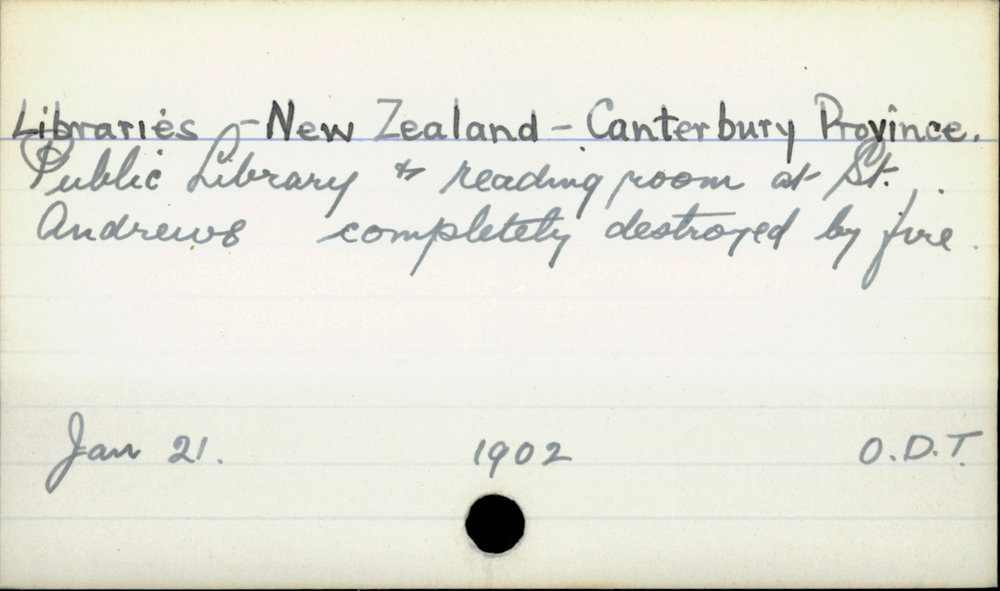 Libraries - New Zealand - Canterbury Province.
Public Library & reading room at St.
Andrews completely destroyed by fire.
Jan 21. 1902 O.D.T.